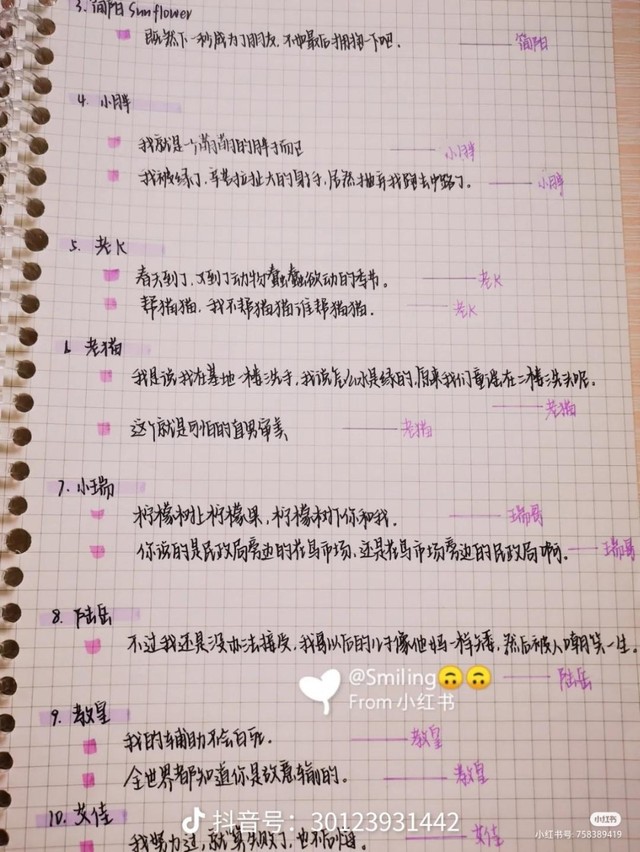 3. 简阳 Sunflower
既然下一秒成为了朋友,不如最后拥抱一下吧。 —— 简阳
4. 小胖
我就是一个滴滴的胖子而已 —— 小胖
我被绿了,辛苦拉扯大的射手,居然抛弃我跑去中路了。 —— 小胖
5. 老K
春天到了,又到了动物蠢蠢欲动的季节。 —— 老K
帮猫猫,我不帮猫猫谁帮猫猫。 —— 老K
6. 老猫
我是说我在基地一楼洗手,我说怎么水是绿的,原来我们童谣在二楼洗头呢。
—— 老猫
这个就是可怕的直男审美 —— 老猫
7. 小瑞
柠檬树上柠檬果,柠檬树下你和我。 —— 瑞哥
你说的是民政局旁边的花鸟市场,还是花鸟市场旁边的民政局啊。 —— 瑞哥
8. 陆岳
不过我还是没办法接受,我哥以后的儿子像他妈一样矮,然后被人嘲笑一生。
—— 陆岳
@Smiling🙃🙃
From 小红书
9. 教皇
我的辅助不会白死。 —— 教皇
全世界都知道你是故意输的。 —— 教皇
10. 艾佳
抖音号:30123931442
我努力过,就算失败了,也不后悔。 —— 艾佳
小红书
小红书号:758389419